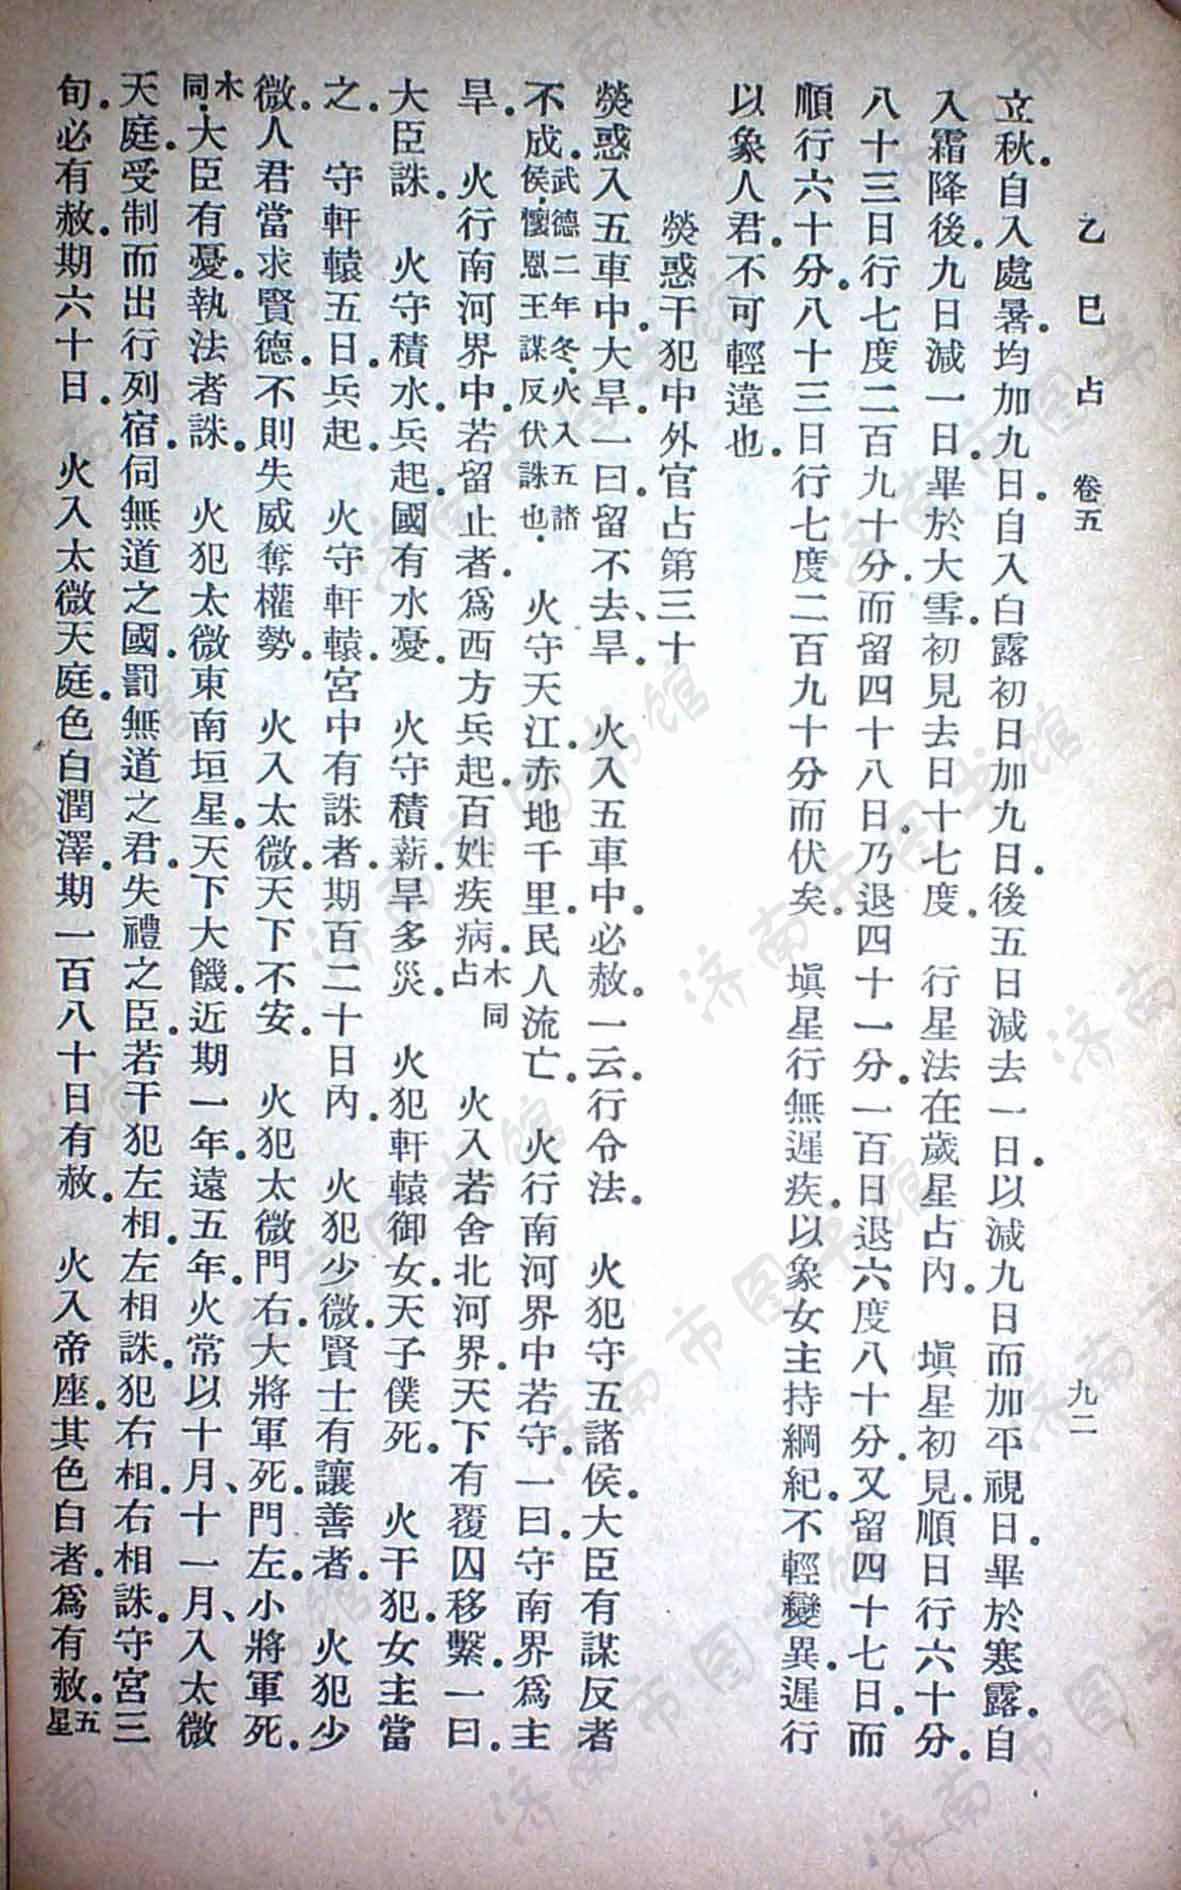 乙巳占　卷五　九二
立秋。自入處暑。均加九日。自入白露初日加九日。後五日減去一日。以減九日而加平視日。畢於寒露。自
入霜降後。九日減一日。畢於大雪。初見去日十七度。　行星法在歲星占內。　塡星初見。順日行六十分。
八十三日行七度二百九十分。而留四十八日。乃退四十一分。一百日退六度八十分。又留四十七日。而
順行六十分。八十三日行七度二百九十分而伏矣。　塡星行無遲疾。以象女主持綱紀。不輕變異。遲行
以象人君。不可輕違也。
熒惑干犯中外官占第三十
熒惑入五車中。大旱。一曰。留不去、旱。　火入五車中。必赦。一云。行令法。　火犯守五諸侯。大臣有謀反者
不成。武德二年冬。火入五諸侯。懷恩王謀反伏誅也。　火守天江。赤地千里。民人流亡。　火行南河界中若守。一曰。守南界爲主
旱。　火行南河界中。若留止者。爲西方兵起。百姓疾病。木占同　火入若舍北河界。天下有覆囚移繫。一曰。
大臣誅。　火守積水。兵起。國有水憂。　火守積薪。旱多災。　火犯軒轅御女。天子僕死。　火干犯。女主當
之。　守軒轅五日。兵起。　火守軒轅。宮中有誅者。期百二十日內。　火犯少微。賢士有讓善者。　火犯少
微。人君當求賢德。不則失威奪權勢。　火入太微。天下不安。　火犯太微門右。大將軍死。門左。小將軍死。
木同。大臣有憂。執法者誅。　火犯太微東南垣星。天下大饑。近期一年。遠五年。火常以十月、十一月、入太微
天庭。受制而出行列宿。伺無道之國。罰無道之君。失禮之臣。若干犯左相。左相誅。犯右相。右相誅。守宮三
旬。必有赦。期六十日。　火入太微天庭。色白潤澤。期一百八十日有赦。　火入帝座。其色白者。爲有赦。五星